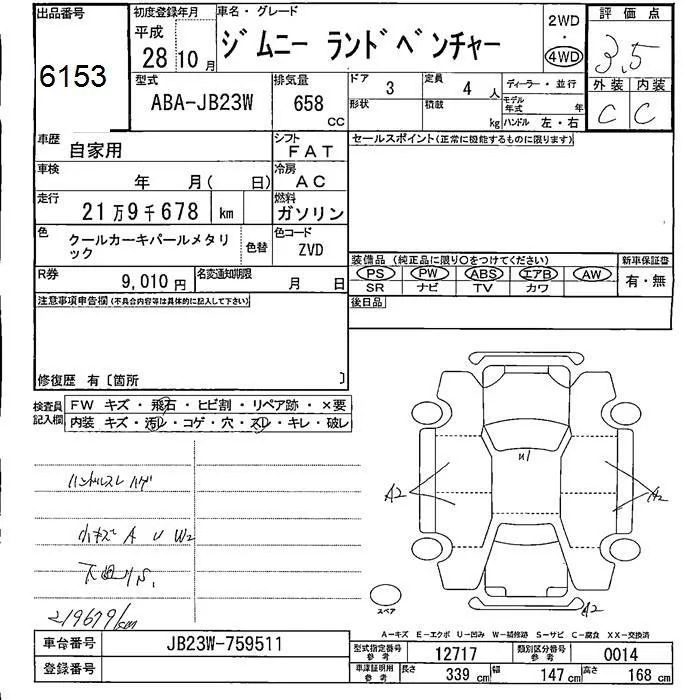 出品番号
6153
初度登録年月
平成
28 10 月
車名・グレード
ジムニー ランドベンチャー
2WD
・
4WD
評価点
3.5
外装 内装
C C
型式
ABA-JB23W
排気量
658 CC
ドア 3
定員 4 人
形状
積載 kg
ディーラー・並行
モデル年式 年
ハンドル 左・右
車歴
自家用
シフト
FAT
車検
年 月( 日)
冷房
AC
走行
21万9千678 km
燃料
ガソリン
色
クールカーキパールメタリック
色替
色コード
ZVD
R券
9,010 円
名変通知期限
月 日
セールスポイント(正常に機能するものに限ります)
装備品 (純正品に限り○をつけてください)
PS PW ABS エアB AW
SR ナビ TV カワ
新車保証書
有・無
後日品
注意事項申告欄(不具合内容等は具体的に記入して下さい)
修復歴 有〔箇所 〕
検査員記入欄
FW キズ・飛石・ヒビ割・リペア跡・×要
内装 キズ・汚レ・コゲ・穴・スレ・キレ・破レ
ハンドルスレ ハゲ
小キズ A U W2
下廻りS.
219679km
U1
A2
A2
A2
スペア
A-キズ E-エクボ U-凹み W-補修跡 S-サビ C-腐食 XX-交換済
車台番号
JB23W-759511
登録番号
型式指定番号参考
12717
類別区分番号参考
0014
車庫証明用参考
長さ 339 cm
幅 147 cm
高さ 168 cm